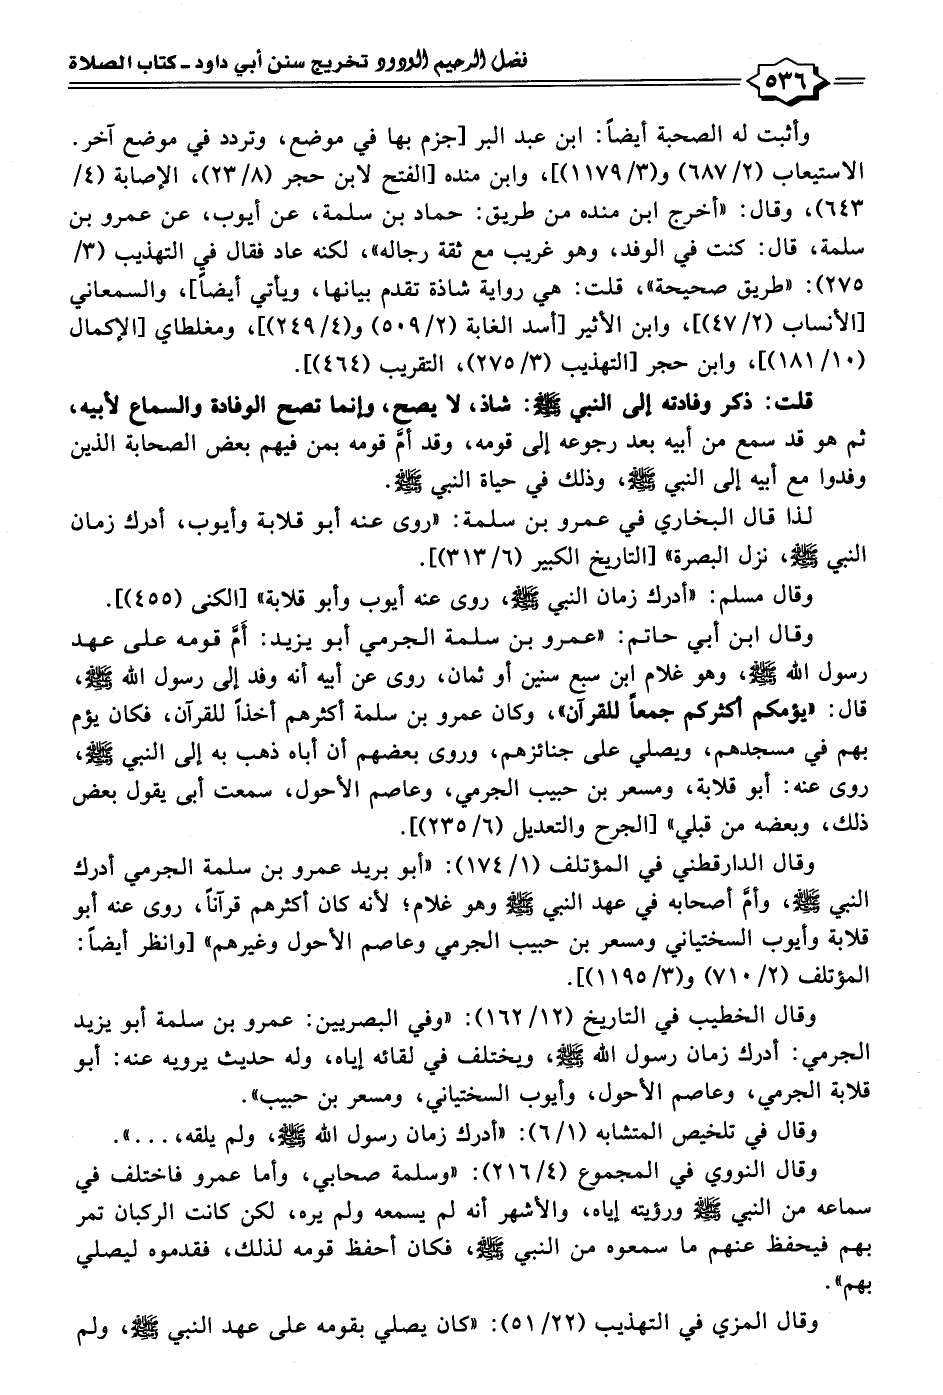 فضل الرحيم الودود تخريج سنن أبي داود - كتاب الصلاة
٥٣٦
وأثبت له الصحبة أيضاً: ابن عبد البر [جزم بها في موضع، وتردد في موضع آخر.
الاستيعاب (٦٨٧/٢) و(١١٧٩/٣)]، وابن منده [الفتح لابن حجر (٢٣/٨)، الإصابة (٤/
٦٤٣)، وقال: «أخرج ابن منده من طريق: حماد بن سلمة، عن أيوب، عن عمرو بن
سلمة، قال: كنت في الوفد، وهو غريب مع ثقة رجاله»، لكنه عاد فقال في التهذيب (٣/
٢٧٥): «طريق صحيحة»، قلت: هي رواية شاذة تقدم بيانها، ويأتي أيضاً]، والسمعاني
[الأنساب (٤٧/٢)]، وابن الأثير [أسد الغابة (٥٠٩/٢) و(٢٤٩/٤)]، ومغلطاي [الإكمال
(١٨١/١٠)]، وابن حجر [التهذيب (٢٧٥/٣)، التقريب (٤٦٤)].
قلت: ذكر وفادته إلى النبي ﷺ: شاذ، لا يصح، وإنما تصح الوفادة والسماع لأبيه،
ثم هو قد سمع من أبيه بعد رجوعه إلى قومه، وقد أمَّ قومه بمن فيهم بعض الصحابة الذين
وفدوا مع أبيه إلى النبي ﷺ، وذلك في حياة النبي ﷺ.
لذا قال البخاري في عمرو بن سلمة: «روى عنه أبو قلابة وأيوب، أدرك زمان
النبي ﷺ، نزل البصرة» [التاريخ الكبير (٣١٣/٦)].
وقال مسلم: «أدرك زمان النبي ﷺ، روى عنه أيوب وأبو قلابة» [الكنى (٤٥٥)].
وقال ابن أبي حاتم: «عمرو بن سلمة الجرمي أبو يزيد: أَمَّ قومه على عهد
رسول الله ﷺ، وهو غلام ابن سبع سنين أو ثمان، روى عن أبيه أنه وفد إلى رسول الله ﷺ،
قال: «يؤمكم أكثركم جمعاً للقرآن»، وكان عمرو بن سلمة أكثرهم أخذاً للقرآن، فكان يؤم
بهم في مسجدهم، ويصلي على جنائزهم، وروى بعضهم أن أباه ذهب به إلى النبي ﷺ،
روى عنه: أبو قلابة، ومسعر بن حبيب الجرمي، وعاصم الأحول، سمعت أبى يقول بعض
ذلك، وبعضه من قبلي» [الجرح والتعديل (٢٣٥/٦)].
وقال الدارقطني في المؤتلف (١٧٤/١): «أبو بريد عمرو بن سلمة الجرمي أدرك
النبي ﷺ، وأمَّ أصحابه في عهد النبي ﷺ وهو غلام؛ لأنه كان أكثرهم قرآناً، روى عنه أبو
قلابة وأيوب السختياني ومسعر بن حبيب الجرمي وعاصم الأحول وغيرهم» [وانظر أيضاً:
المؤتلف (٧١٠/٢) و(١١٩٥/٣)].
وقال الخطيب في التاريخ (١٦٢/١٢): «وفي البصريين: عمرو بن سلمة أبو يزيد
الجرمي: أدرك زمان رسول الله ﷺ، ويختلف في لقائه إياه، وله حديث يرويه عنه: أبو
قلابة الجرمي، وعاصم الأحول، وأيوب السختياني، ومسعر بن حبيب».
وقال في تلخيص المتشابه (٦/١): «أدرك زمان رسول الله ﷺ، ولم يلقه، ...».
وقال النووي في المجموع (٢١٦/٤): «وسلمة صحابي، وأما عمرو فاختلف في
سماعه من النبي ﷺ ورؤيته إياه، والأشهر أنه لم يسمعه ولم يره، لكن كانت الركبان تمر
بهم فيحفظ عنهم ما سمعوه من النبي ﷺ، فكان أحفظ قومه لذلك، فقدموه ليصلي
بهم».
وقال المزي في التهذيب (٥١/٢٢): «كان يصلي بقومه على عهد النبي ﷺ، ولم